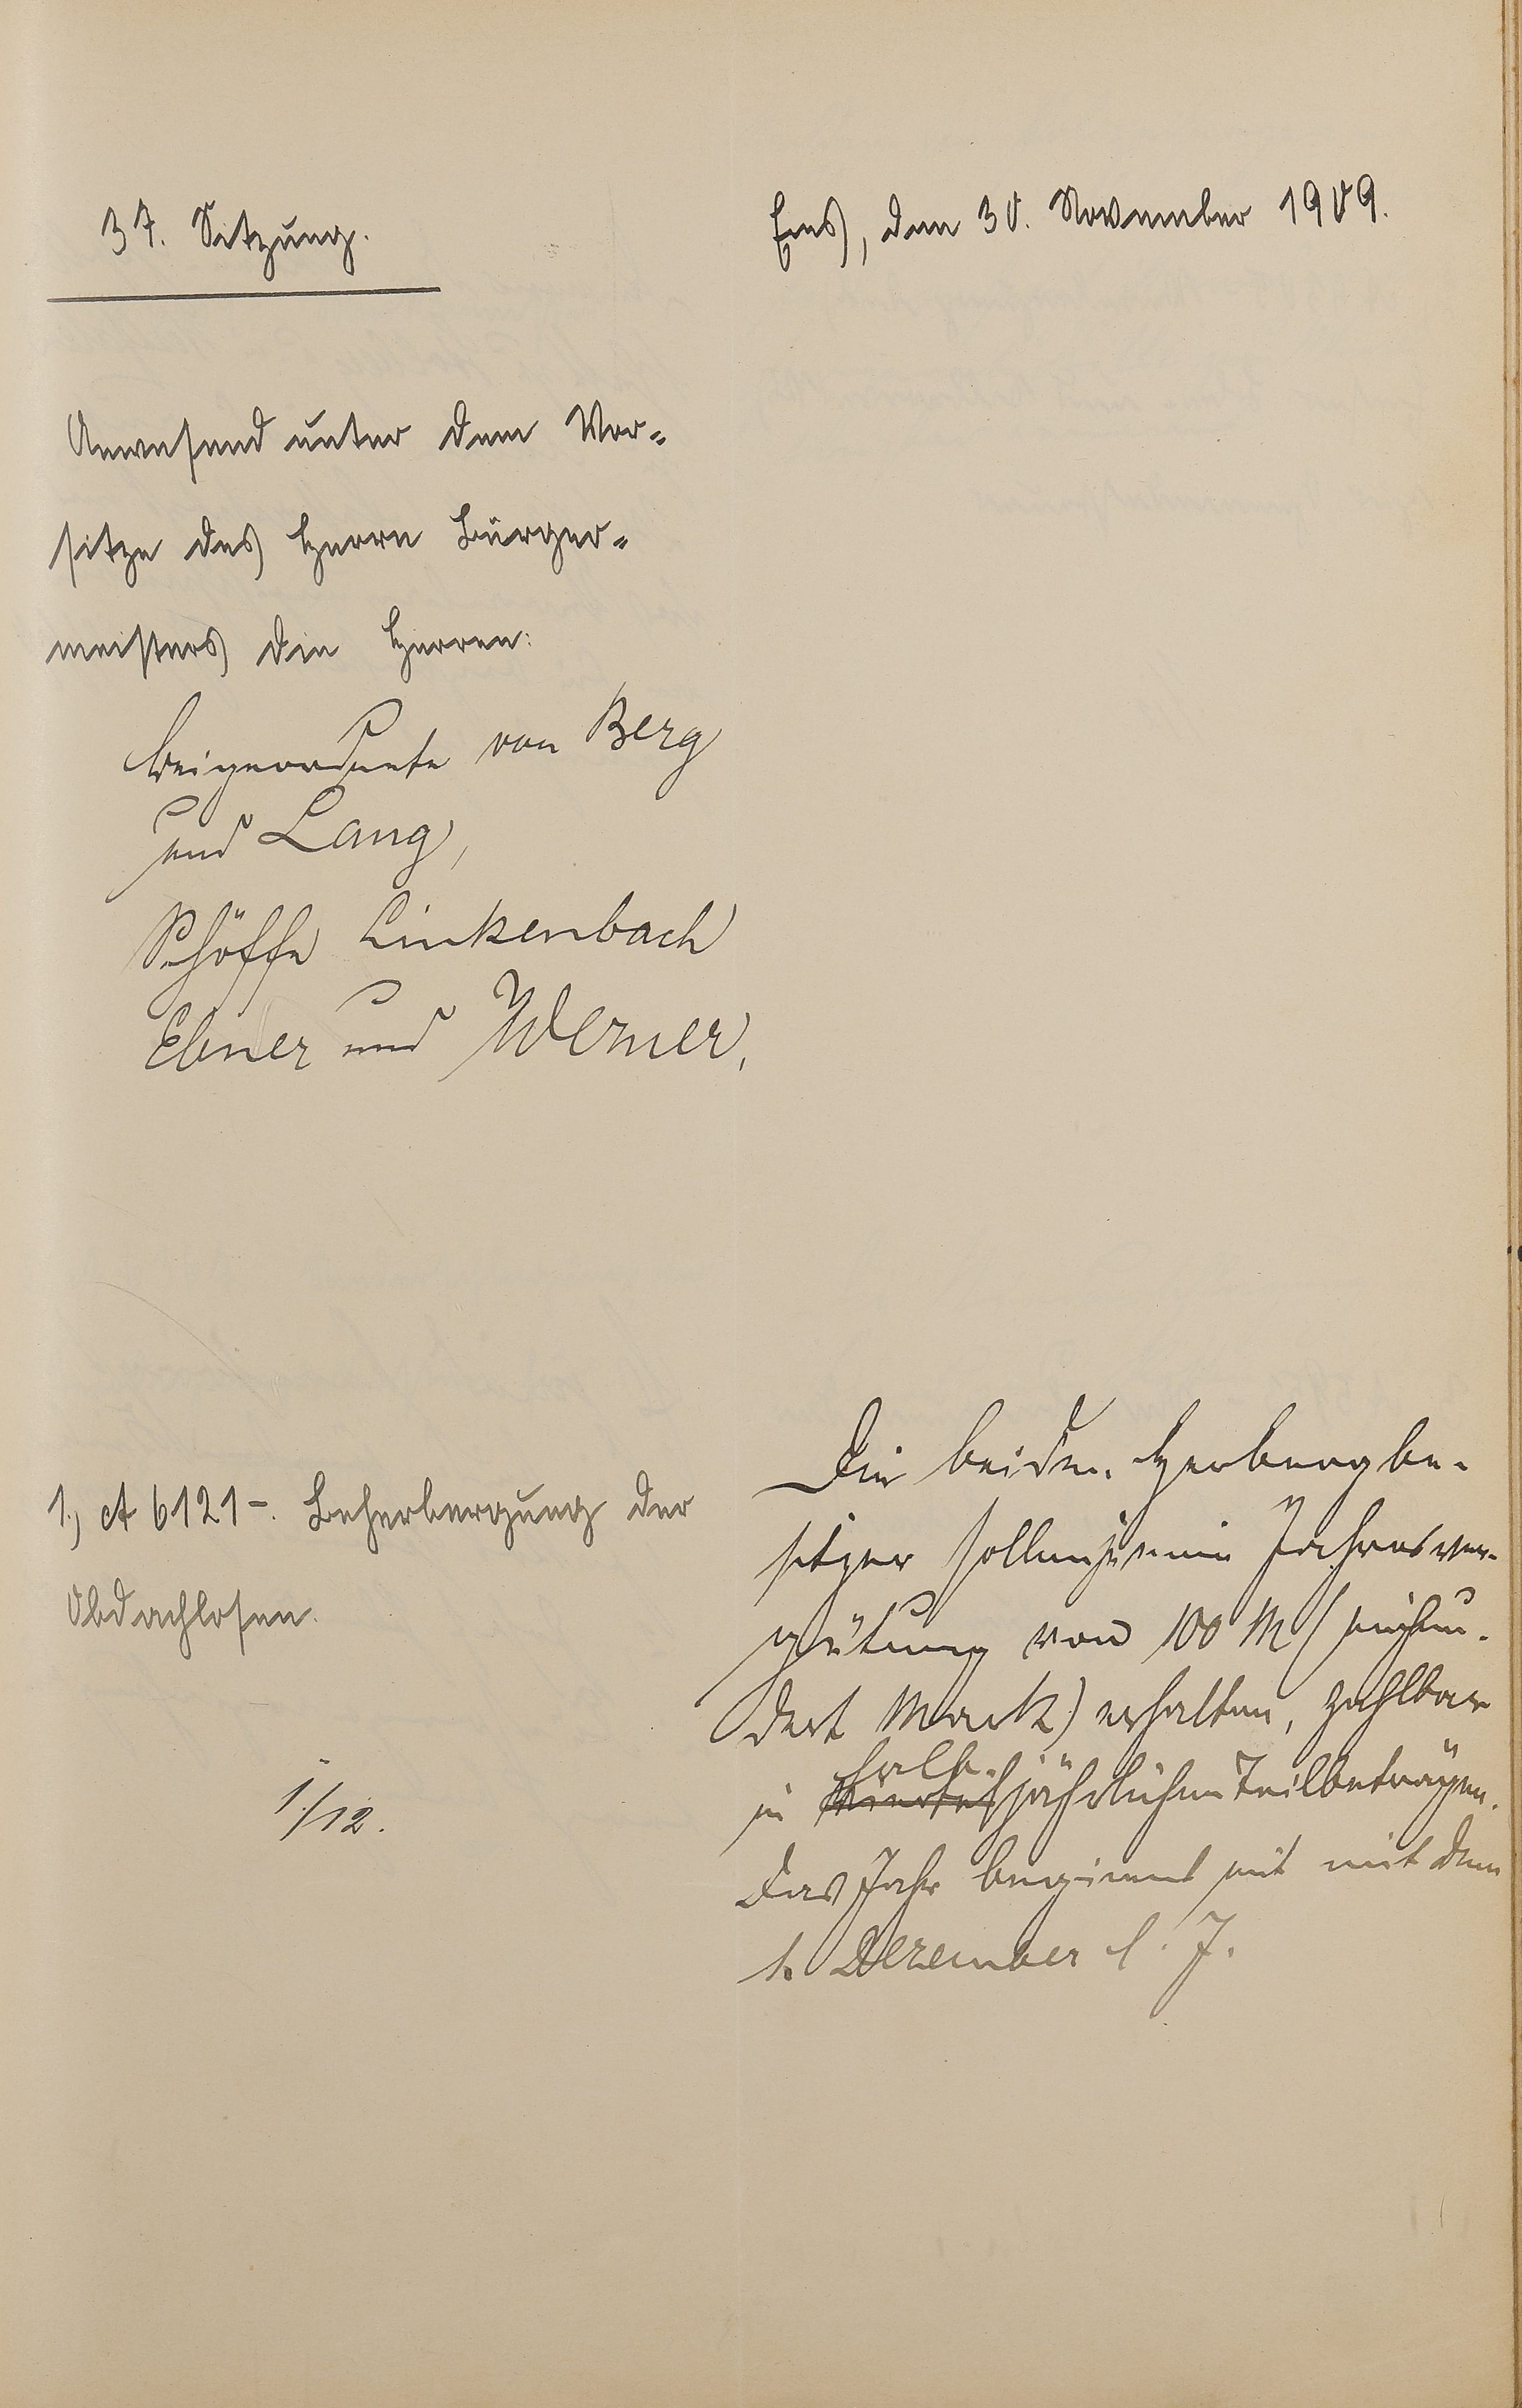 37. Sitzung.
Ems, den 30. November 1909.
Anwesend unter dem Vor-
sitze des Herrn Bürger-
meisters die Herren:
Beigeordnete von Berg
und Lang,
Schöffe Linkenbach
Ebner und Werner.
1, A 6121-. Beherbergung der
Obdachlosen.
1./12.
Die beiden Herbergbe-
sitzer sollen je eine Jahresver-
gütung von 100 M (einhun-
dert Mark) erhalten, zahlbar
halb-
in viertel jährlichen Teilbeträgen.
Das Jahr beginnt mit dem
1. Dezember l. J.